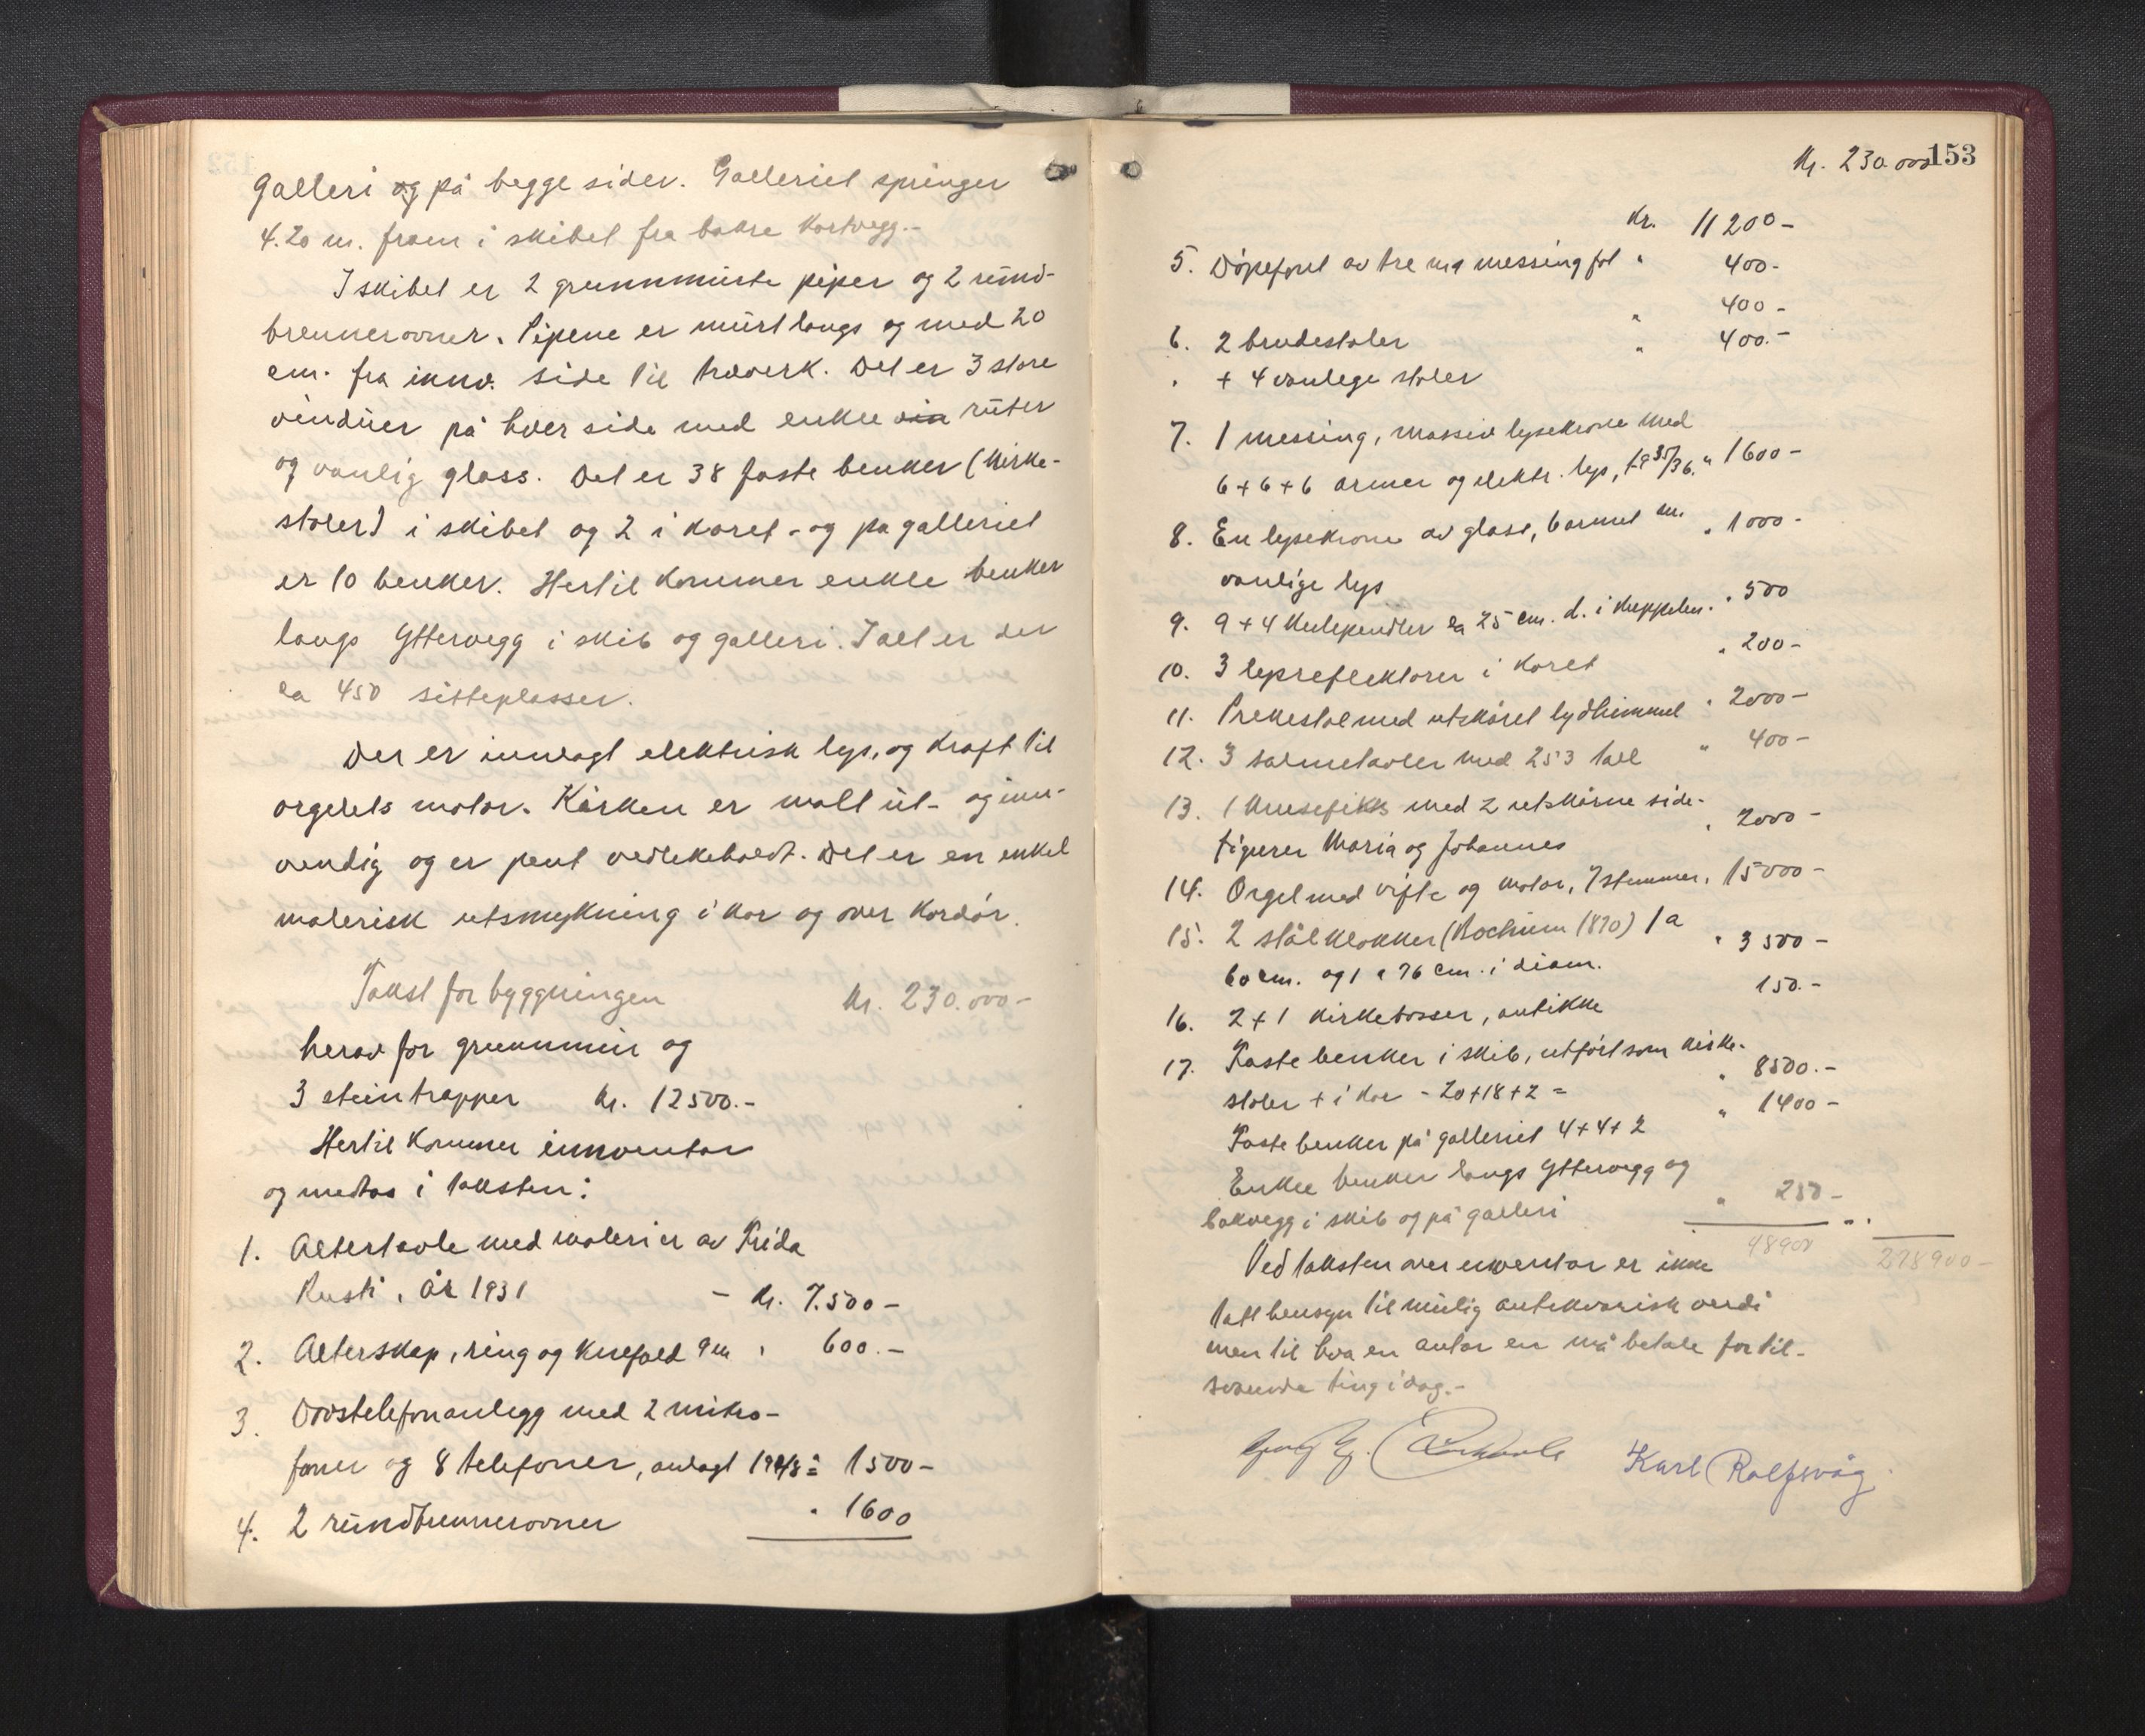 galleri og på begge sider. Galleriet springer
4.20 m. fram i skibet fra bakre kortvegg.-
I skibet er 2 grunnmurte piper og 2 rund-
brennerovner. Pipene er murt langs og med 20
cm. fra innv. side til treverk. Det er 3 store
vinduer på hver side med enkle vin ruter
og vanlig glass. Det er 38 faste benker (kirke-
stoler) i skibet og 2 i koret - og på galleriet
er 10 benker. Hertil kommer enkle benker
langs yttervegg i skib og galleri. I alt er der
ca 450 sitteplasser.
Der er innlagt elektrisk lys, og kraft til
orgelets motor. Kirken er malt ut- og inn-
vendig og er pent vedlikeholdt. Det er en enkel
malerisk utsmykning i kor og over kordør.
Takst for byggningen kr. 230.000-
herav for grunnmur og
3 steintrapper kr. 12500.-
Hertil kommer innventar
og medtas i taksten:
1. Altertavle med malerier av Frida
Rusti, år 1931 - kr. 7.500-
2. Alterskap, ring og knefald 9 m " 600.-
3. Døvstelefonanlegg med 2 mikro-
foner og 8 telefoner, anlagt " 1500-
4. 2 rundbrennerovner " 1600
153
kr. 230.000
kr. 11200-
5. Døpefont av tre m/ messingfat " 400-
" 400-
6. 2 brudestoler " 400.-
" + 4 vanlege stoler
7. 1 messing, massiv lysekrone med
6+6+6 armer og elektr. lys, fra 35/36. " 1600-
8. En lysekrone av glass, 6 armet m. " 1000-
vanlige lys
9. 9+4 kulependler ca 25 cm. d. i kuppelen. " 500
10. 3 lysreflektorer i koret " 200-
11. Prekestol med utskåret lydhimmel " 2000-
12. 3 salmetavler med 253 tall " 400-
13. 1 krusefiks med 2 utskårne side-
figurer Maria og Johannes " 2000-
14. Orgel med vifte og motor, 7 stemmer, " 15000-
15. 2 stålklokker (Bochum 1870) 1 a " 3500-
60 cm. og 1 a 76 cm. i diam.
16. 2+1 kirkebøsser, antikke 150.-
17. Faste benker i skib, utført som kirke-
stoler + i kor - 20+18+2 = " 8500.-
Faste benker på galleriet 4+4+2 " 1400-
Enkle benker langs yttervegg og
bakvegg i skib og på galleri " 250-
48900 278900-
Ved taksten over inventar er ikke
tatt hensyn til mulig antikvarisk verdi
men til hva en antar en må betale for til-
svarende ting i dag.-
Karl Rolfsvåg